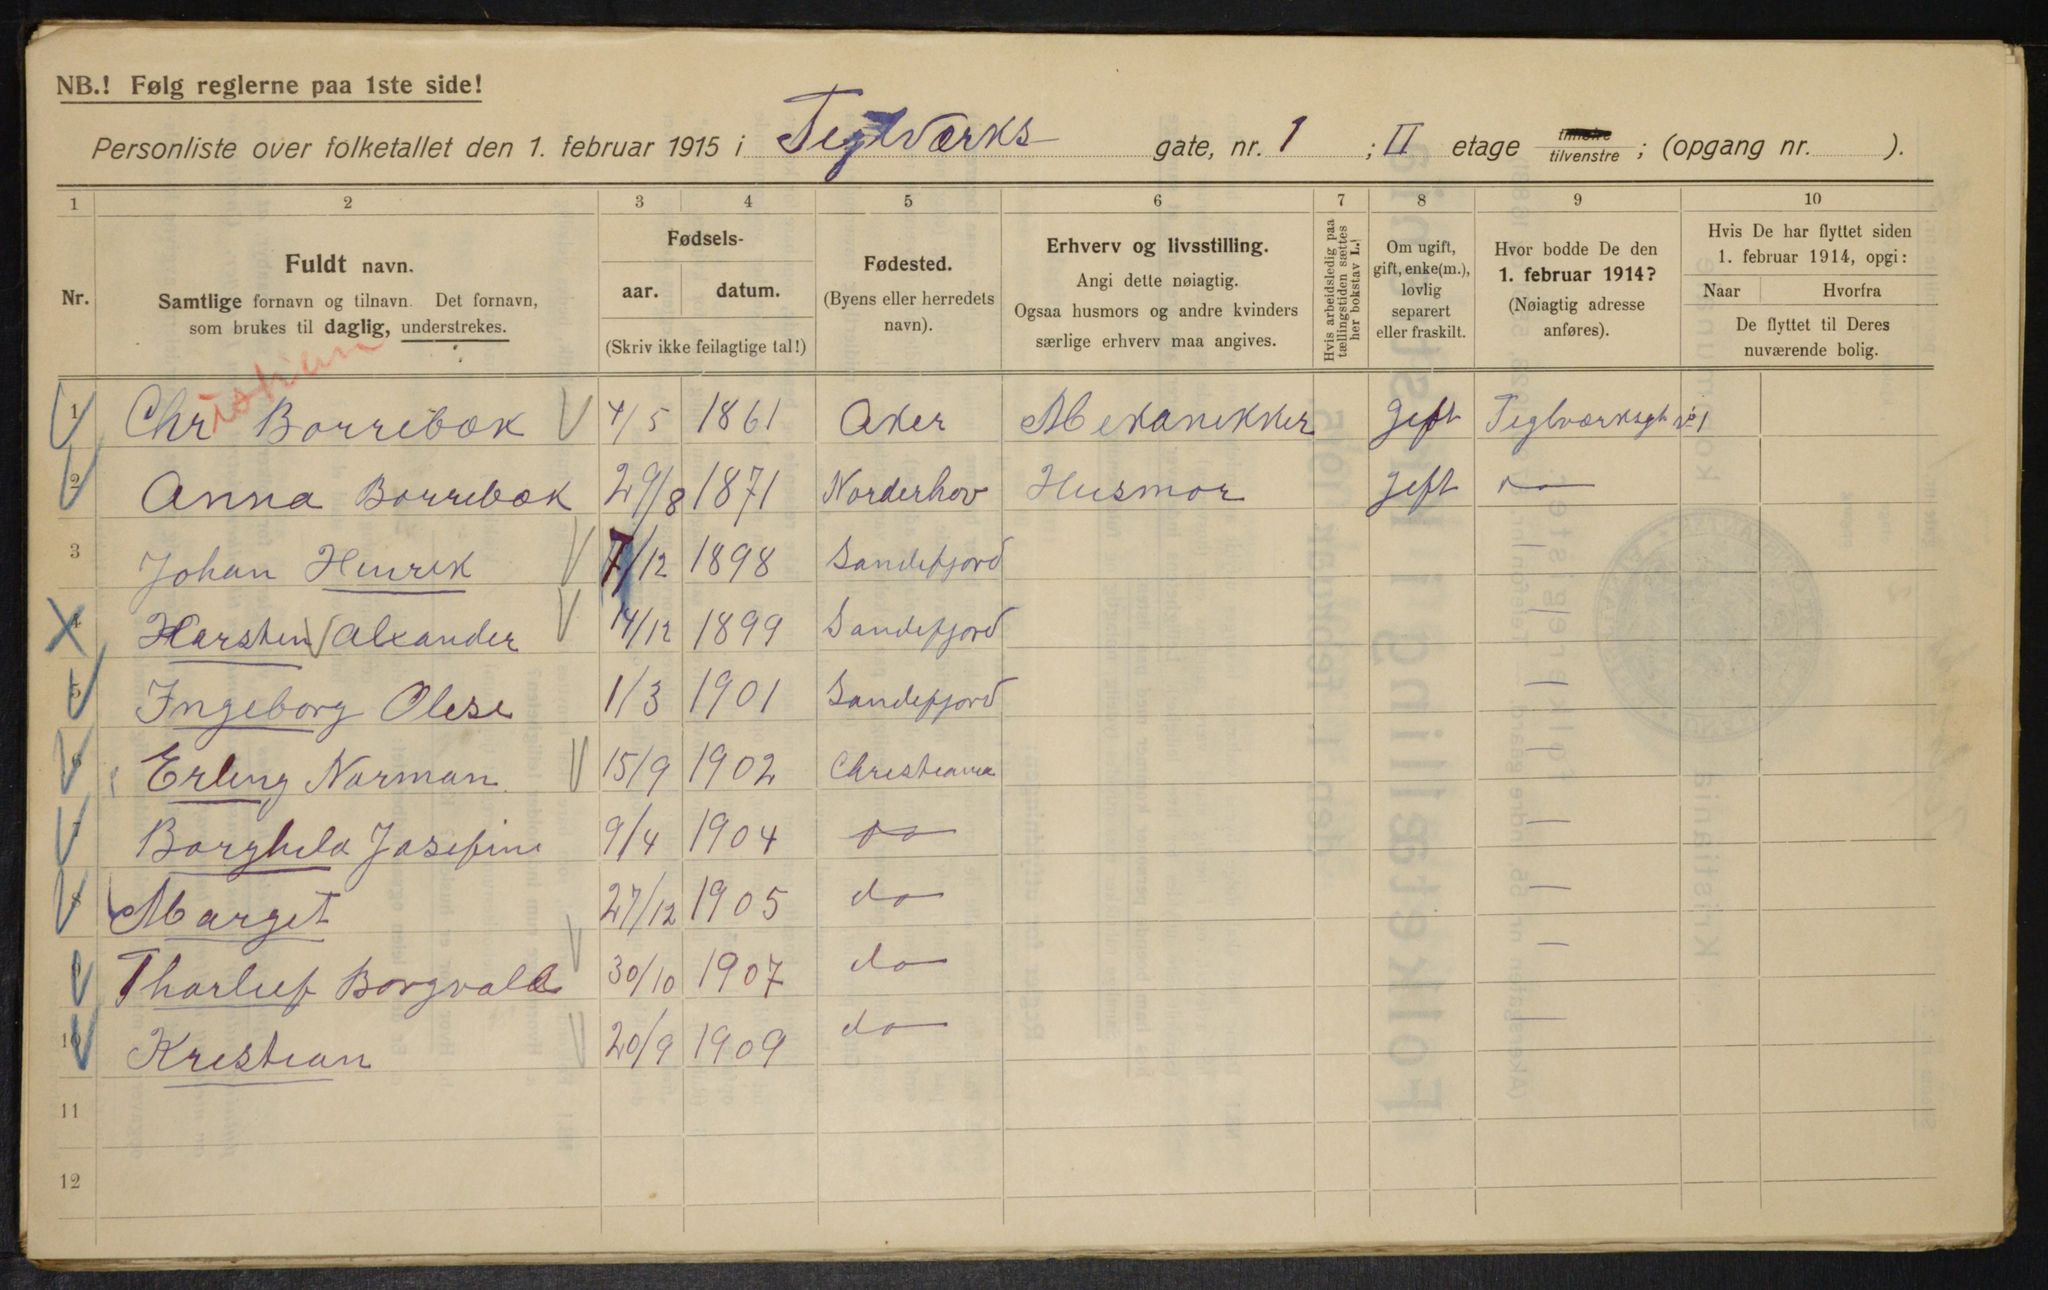 NB.! Følg reglerne paa 1ste side!
Personliste over folketallet den 1. februar 1915 i Teglværks gate, nr. 1 ; II etage tilhøire tilvenstre ; (opgang nr. ).
1 2 3 4 5 6 7 8 9 10
Nr.
Fuldt navn.
Samtlige fornavn og tilnavn. Det fornavn,
som brukes til daglig, understrekes.
Fødsels-
aar. datum.
(Skriv ikke feilagtige tal!)
Fødested.
(Byens eller herredets
navn).
Erhverv og livsstilling.
Angi dette nøiagtig.
Ogsaa husmors og andre kvinders
særlige erhverv maa angives.
Hvis arbeidsledig paa
tællingstiden sættes
her bokstav L.!
Om ugift,
gift, enke(m.),
lovlig
separert
eller fraskilt.
Hvor bodde De den
1. februar 1914?
(Nøiagtig adresse
anføres).
Hvis De har flyttet siden
1. februar 1914, opgi:
Naar Hvorfra
De flyttet til Deres
nuværende bolig.
1 Christian Borrebæk 4/5 1861 Aker Mekanikker Gift Teglværksgt No 1
2 Anna Borrebæk 29/8 1871 Norderhov Husmor Gift do
3 Johan Henrik 7/12 1898 Sandefjord —
4 Karsten Alxander 14/12 1899 Sandefjord —
5 Ingeborg Olese 1/3 1901 Sandefjord —
6 Erling Norman 15/9 1902 Christiania —
7 Borghild Josefine 9/4 1904 do —
8 Marget 27/12 1905 do —
9 Thorlief Borgvald 30/10 1907 do —
10 Kristian 20/9 1909 do —
11
12